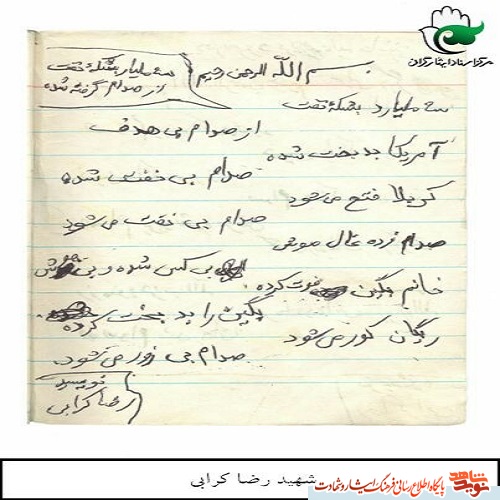 مرکز اسناد ایثارگران
بسم الله الرحمن رحیم
سه ملیارد بشکه نفت
از صدام گرفته شده
سه ملیارد بشکه نفت
از صدام بی هدف
آمریکا بد بخت شده
صدام بی خفت شده
کربلا فتح می‌شود
صدام بی خفت می‌شود
صدام نرده
بی کس شده و بی
خانم بگین فوت کرده
بگین را بد بخت کرده
ریگان کور می‌شود
صدام بی زور می‌شود.
نویسنده
رضا کرابی
شهید رضا کرابی
نوید شاهد
پایگاه اطلاع رسانی فرهنگ ایثار و شهادت